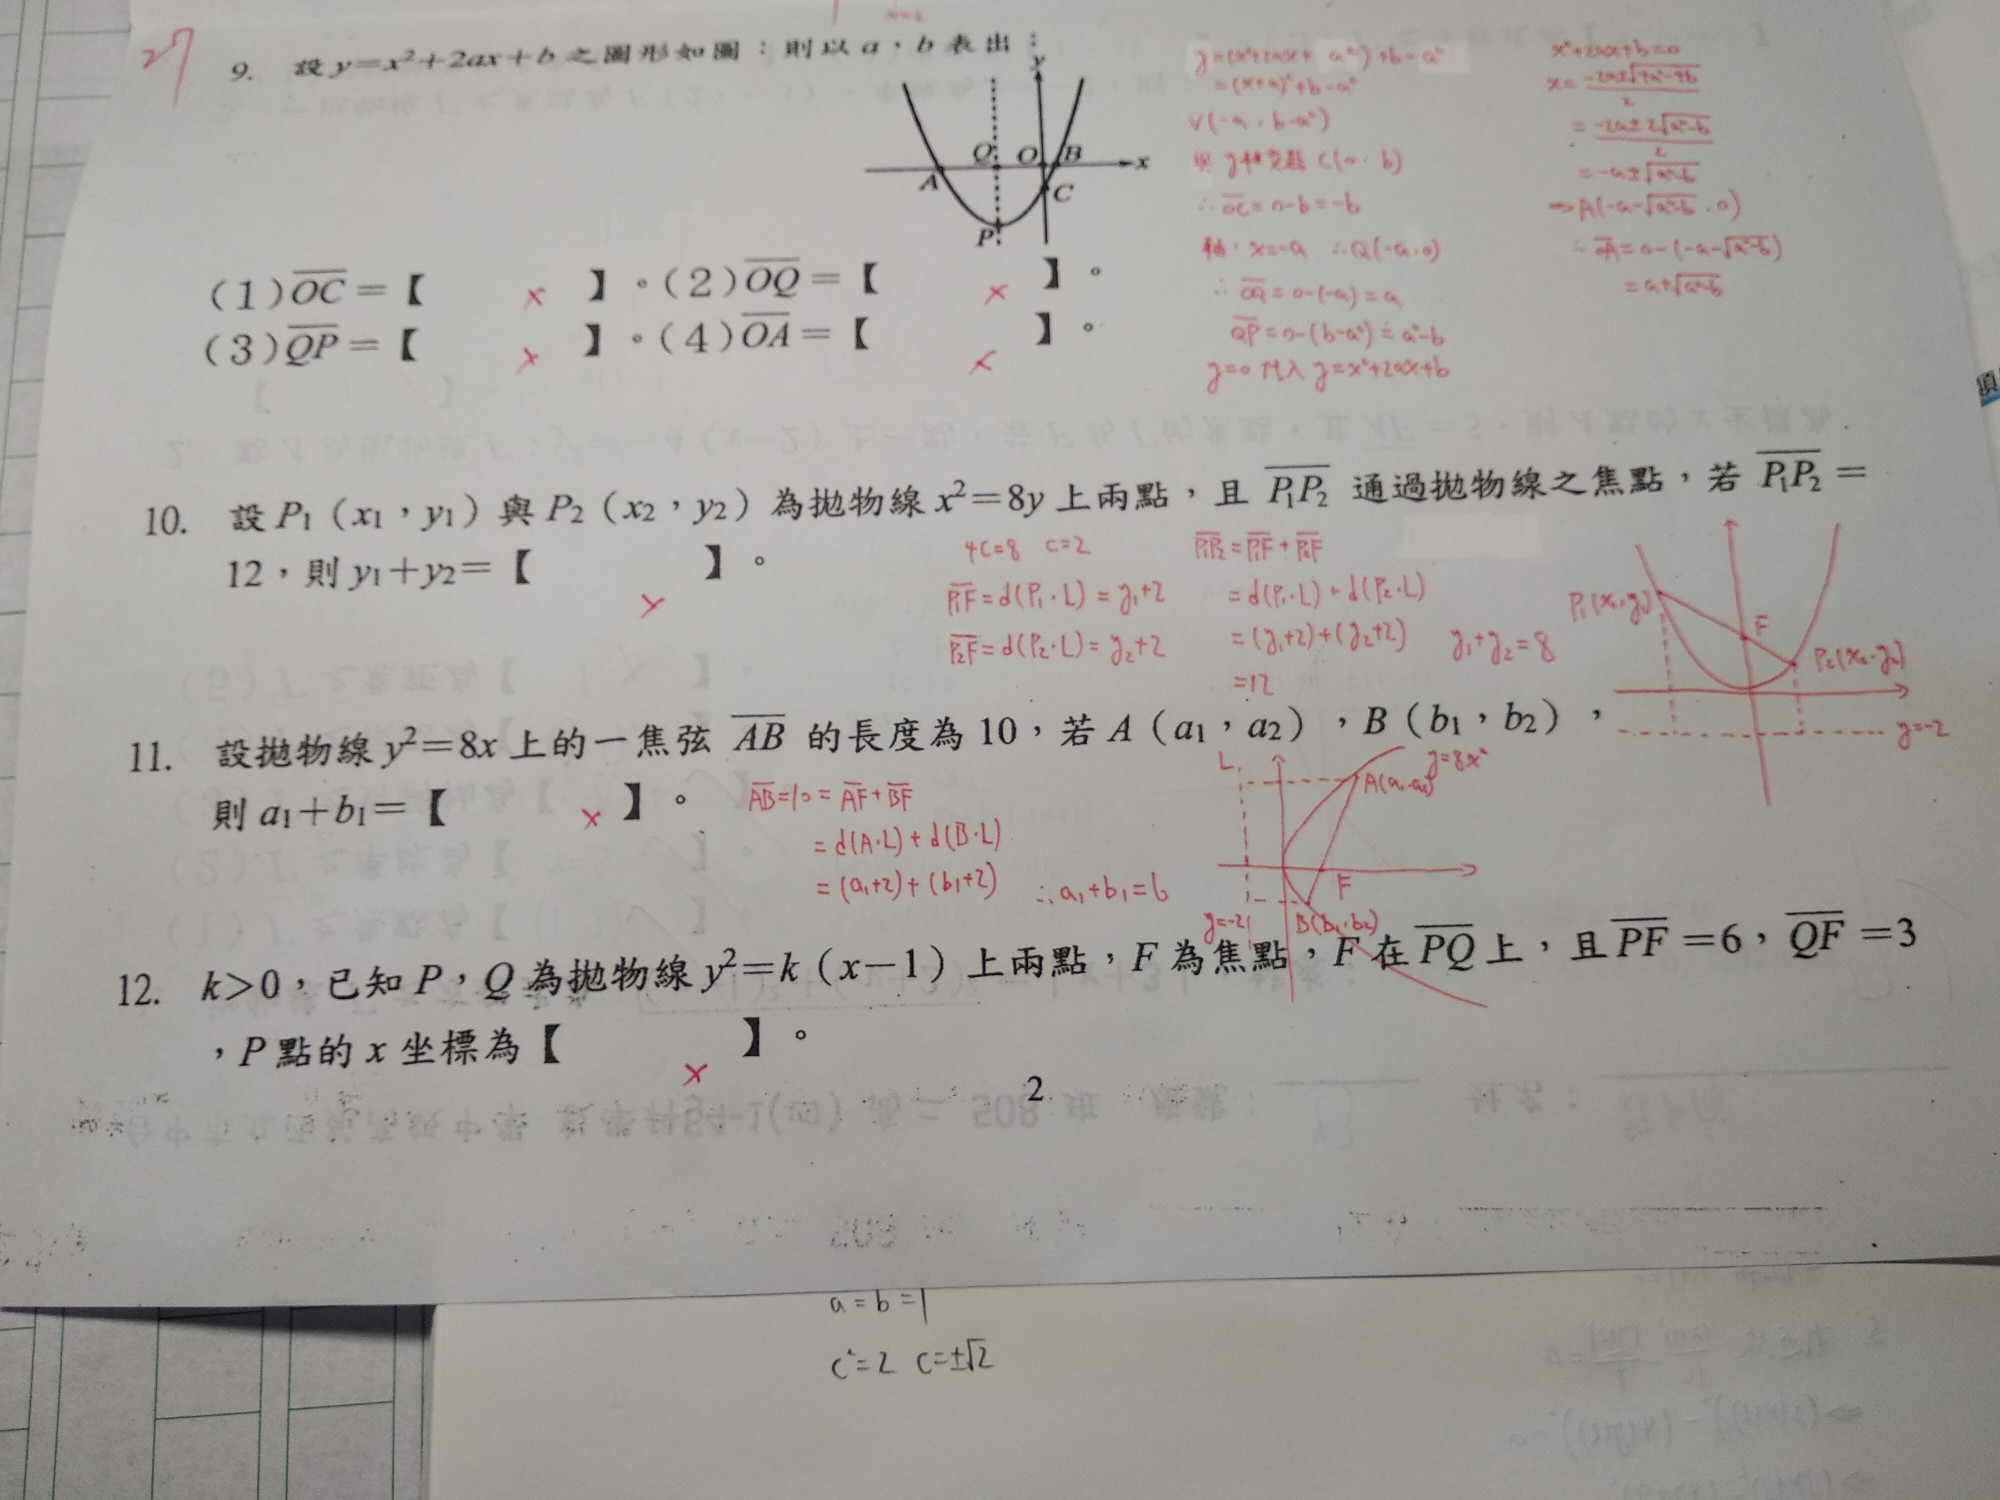 27
9. 設 y=x²+2ax+b 之圖形如圖:則以 a,b 表出:
y
Q O B x
A C
P
(1)OC=【 × 】。(2)OQ=【 × 】。
(3)QP=【 × 】。(4)OA=【 × 】。
y=(x²+2ax+a²)+b-a²
=(x+a)²+b-a²
V(-a,b-a²)
與y軸交點 C(0,b)
∴OC=0-b=-b
軸:x=-a ∴Q(-a,0)
∴OQ=0-(-a)=a
QP=0-(b-a²)=a²-b
y=0代入 y=x²+2ax+b
x²+2ax+b=0
x=(-2a±√4a²-4b)/2
=(-2a±2√a²-b)/2
=-a±√a²-b
⇒A(-a-√a²-b,0)
∴OA=0-(-a-√a²-b)
=a+√a²-b
10. 設 P₁(x₁,y₁)與 P₂(x₂,y₂)為拋物線 x²=8y 上兩點,且 P₁P₂ 通過拋物線之焦點,若 P₁P₂=
12,則 y₁+y₂=【 × 】。
4c=8 c=2
P₁F=d(P₁,L)=y₁+2
P₂F=d(P₂,L)=y₂+2
P₁P₂=P₁F+P₂F
=d(P₁,L)+d(P₂,L)
=(y₁+2)+(y₂+2) y₁+y₂=8
=12
P₁(x₁,y₁)
F
P₂(x₂,y₂)
y=-2
11. 設拋物線 y²=8x 上的一焦弦 AB 的長度為 10,若 A(a₁,a₂),B(b₁,b₂),
則 a₁+b₁=【 × 】。
AB=10=AF+BF
=d(A,L)+d(B,L)
=(a₁+2)+(b₁+2) ∴a₁+b₁=6
L
y=8x²
A(a₁,a₂)
F
y=-2
B(b₁,b₂)
12. k>0,已知 P,Q 為拋物線 y²=k(x-1)上兩點,F 為焦點,F 在 PQ 上,且 PF=6,QF=3
,P 點的 x 坐標為【 × 】。
2
a=b=1
c²=2 c=±√2